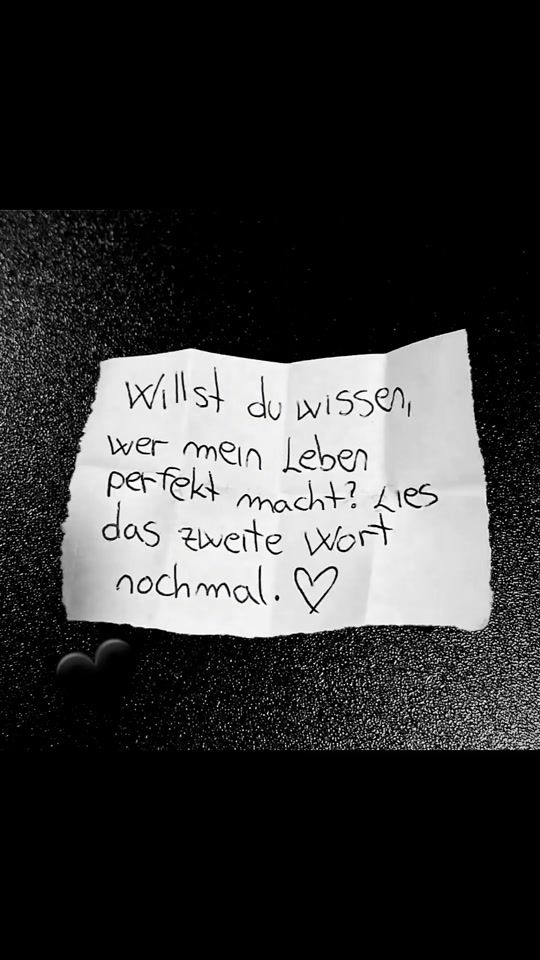 Willst du wissen,
wer mein Leben
perfekt macht? Lies
das zweite Wort
nochmal. ♡